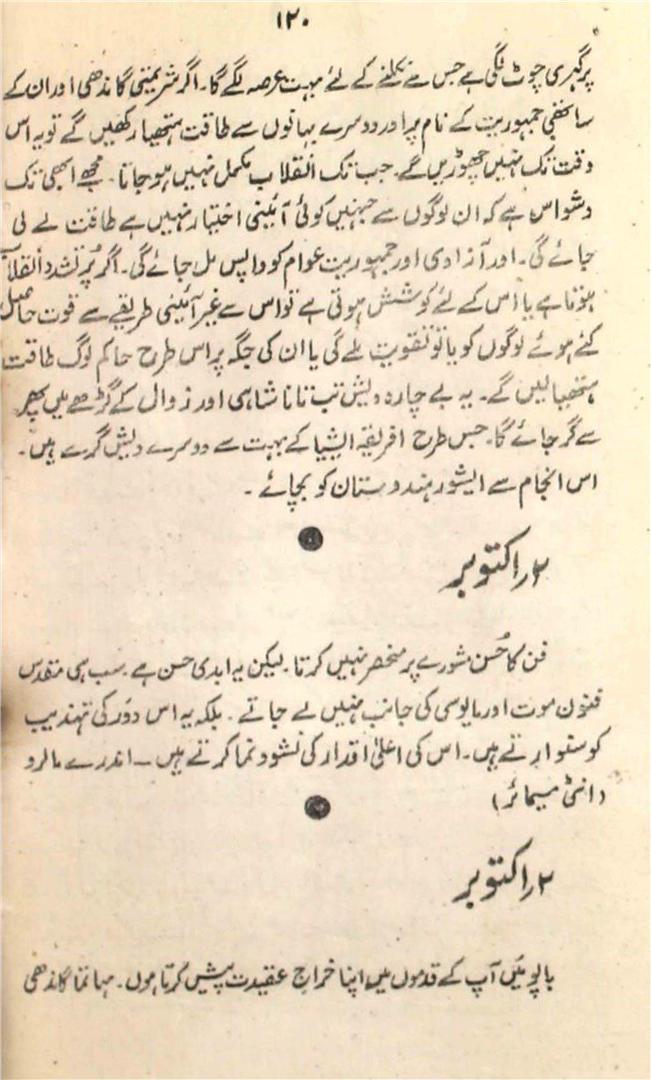 ۱۲۰
پر گہری چوٹ لگی ہے جس سے نکلنے کے لئے بہت عرصہ لگے گا۔ اگر شریمتی گاندھی اور ان کے
ساتھی جمہوریت کے نام پر اور دوسرے بہانوں سے طاقت ہتھیار رکھیں گے تو یہ اس
وقت تک نہیں چھوڑیں گے۔ جب تک انقلاب مکمل نہیں ہو جاتا۔ مجھے ابھی تک
وشواس ہے کہ ان لوگوں سے جنہیں کوئی آئینی اختیار نہیں ہے طاقت لے لی
جائے گی۔ اور آزادی اور جمہوریت عوام کو واپس مل جائے گی۔ اگر پُر تشدد انقلاب
ہوتا ہے یا اس کے لئے کوشش ہوتی ہے تو اس سے غیر آئینی طریقے سے قوت حاصل
کئے ہوئے لوگوں کو یا تو تقویت ملے گی یا ان کی جگہ پر اس طرح حاکم لوگ طاقت
ہتھیا لیں گے۔ یہ بے چارہ دیش تب تانا شاہی اور زوال کے گڑھے میں پھر
سے گر جائے گا۔ جس طرح افریقہ ایشیا کے بہت سے دوسرے دیش گرے ہیں۔
اس انجام سے ایشور ہندوستان کو بچائے۔
۲؍اکتوبر
فن کا حُسن مشورے پر منحصر نہیں کرتا۔ لیکن یہ ابدی حسن ہے۔ سب ہی مقدس
فنون موت اور مایوسی کی جانب نہیں لے جاتے۔ بلکہ یہ اس دَور کی تہذیب
کو سنوارتے ہیں۔ اس کی اعلیٰ اقدار کی نشوونما کرتے ہیں — اندرے مالرو
(انٹی میمائر)
۲؍اکتوبر
باپو میں آپ کے قدموں میں اپنا خراجِ عقیدت پیش کرتا ہوں۔ مہاتما گاندھی